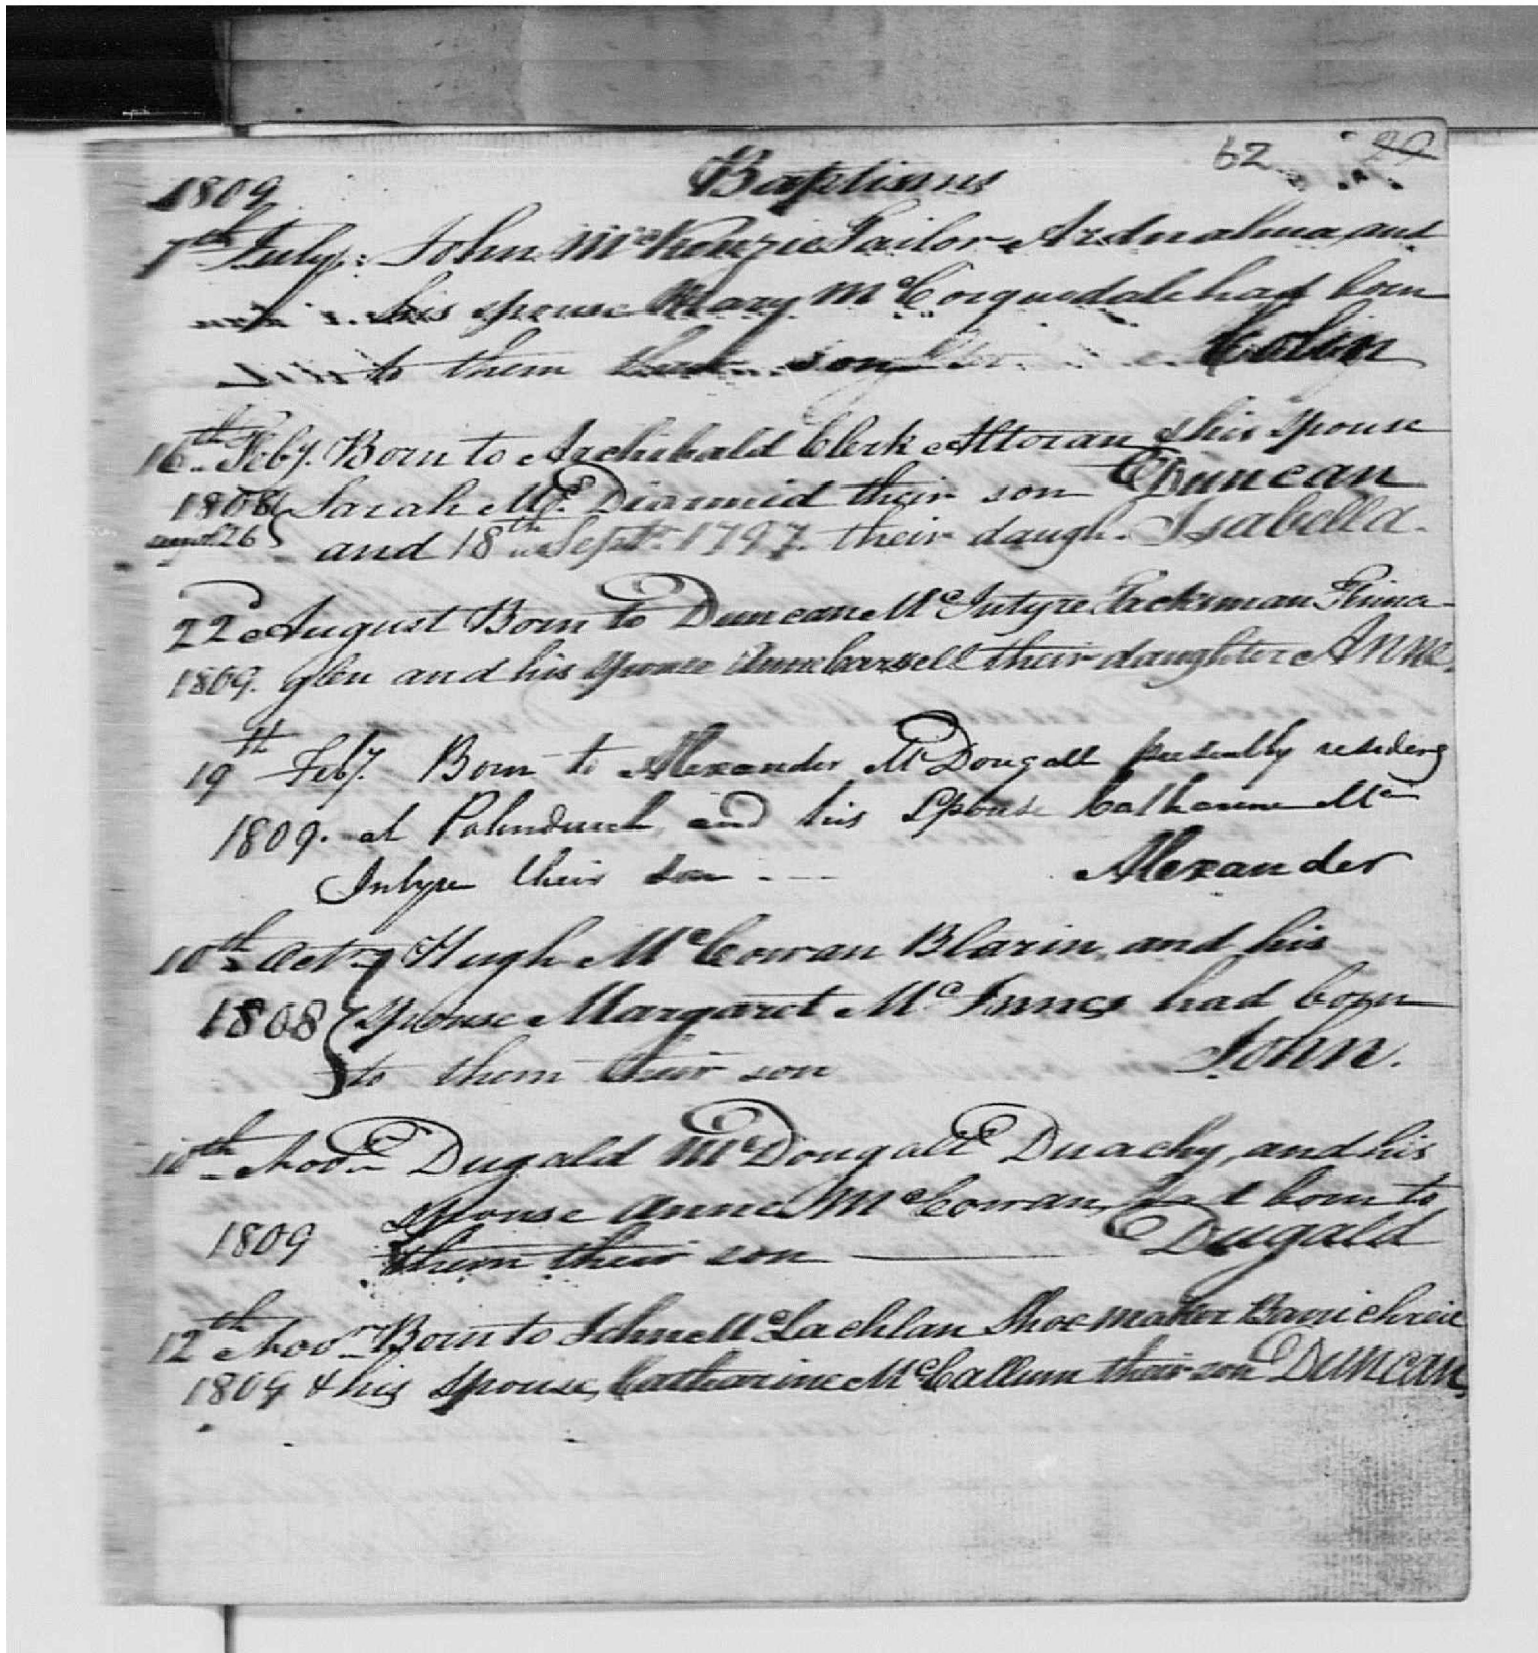 62
Baptisms
1809
7th July: John McKenzie Tailor Ardnahua and
his spouse Mary McCorquodale had born
to them their son Colin
16th Feby. Born to Archibald Clerk Altoran & his spouse
1808 Sarah McDiarmid their son Duncan
26 and 18th Septr. 1797. their daugh. Isabella.
22d August Born to Duncan McIntyre Tacksman
1809. glen and his spouse Anne their daughter Anne.
19th Feby. Born to Alexander McDougall presently residing
1809. at and his Spouse Catharine Mc
Intyre their son Alexander
10th Octr Hugh McCowan Blarin, and his
1808 spouse Margaret McInnes had born
to them their son John.
10th Novr Dugald McDougall Duachy, and his
spouse Anne McCowan, had born to
1809 them their son Dugald
12th Novr Born to John McLachlan Shoemaker
1809 & his spouse, Catharine McCallum their son Duncan,